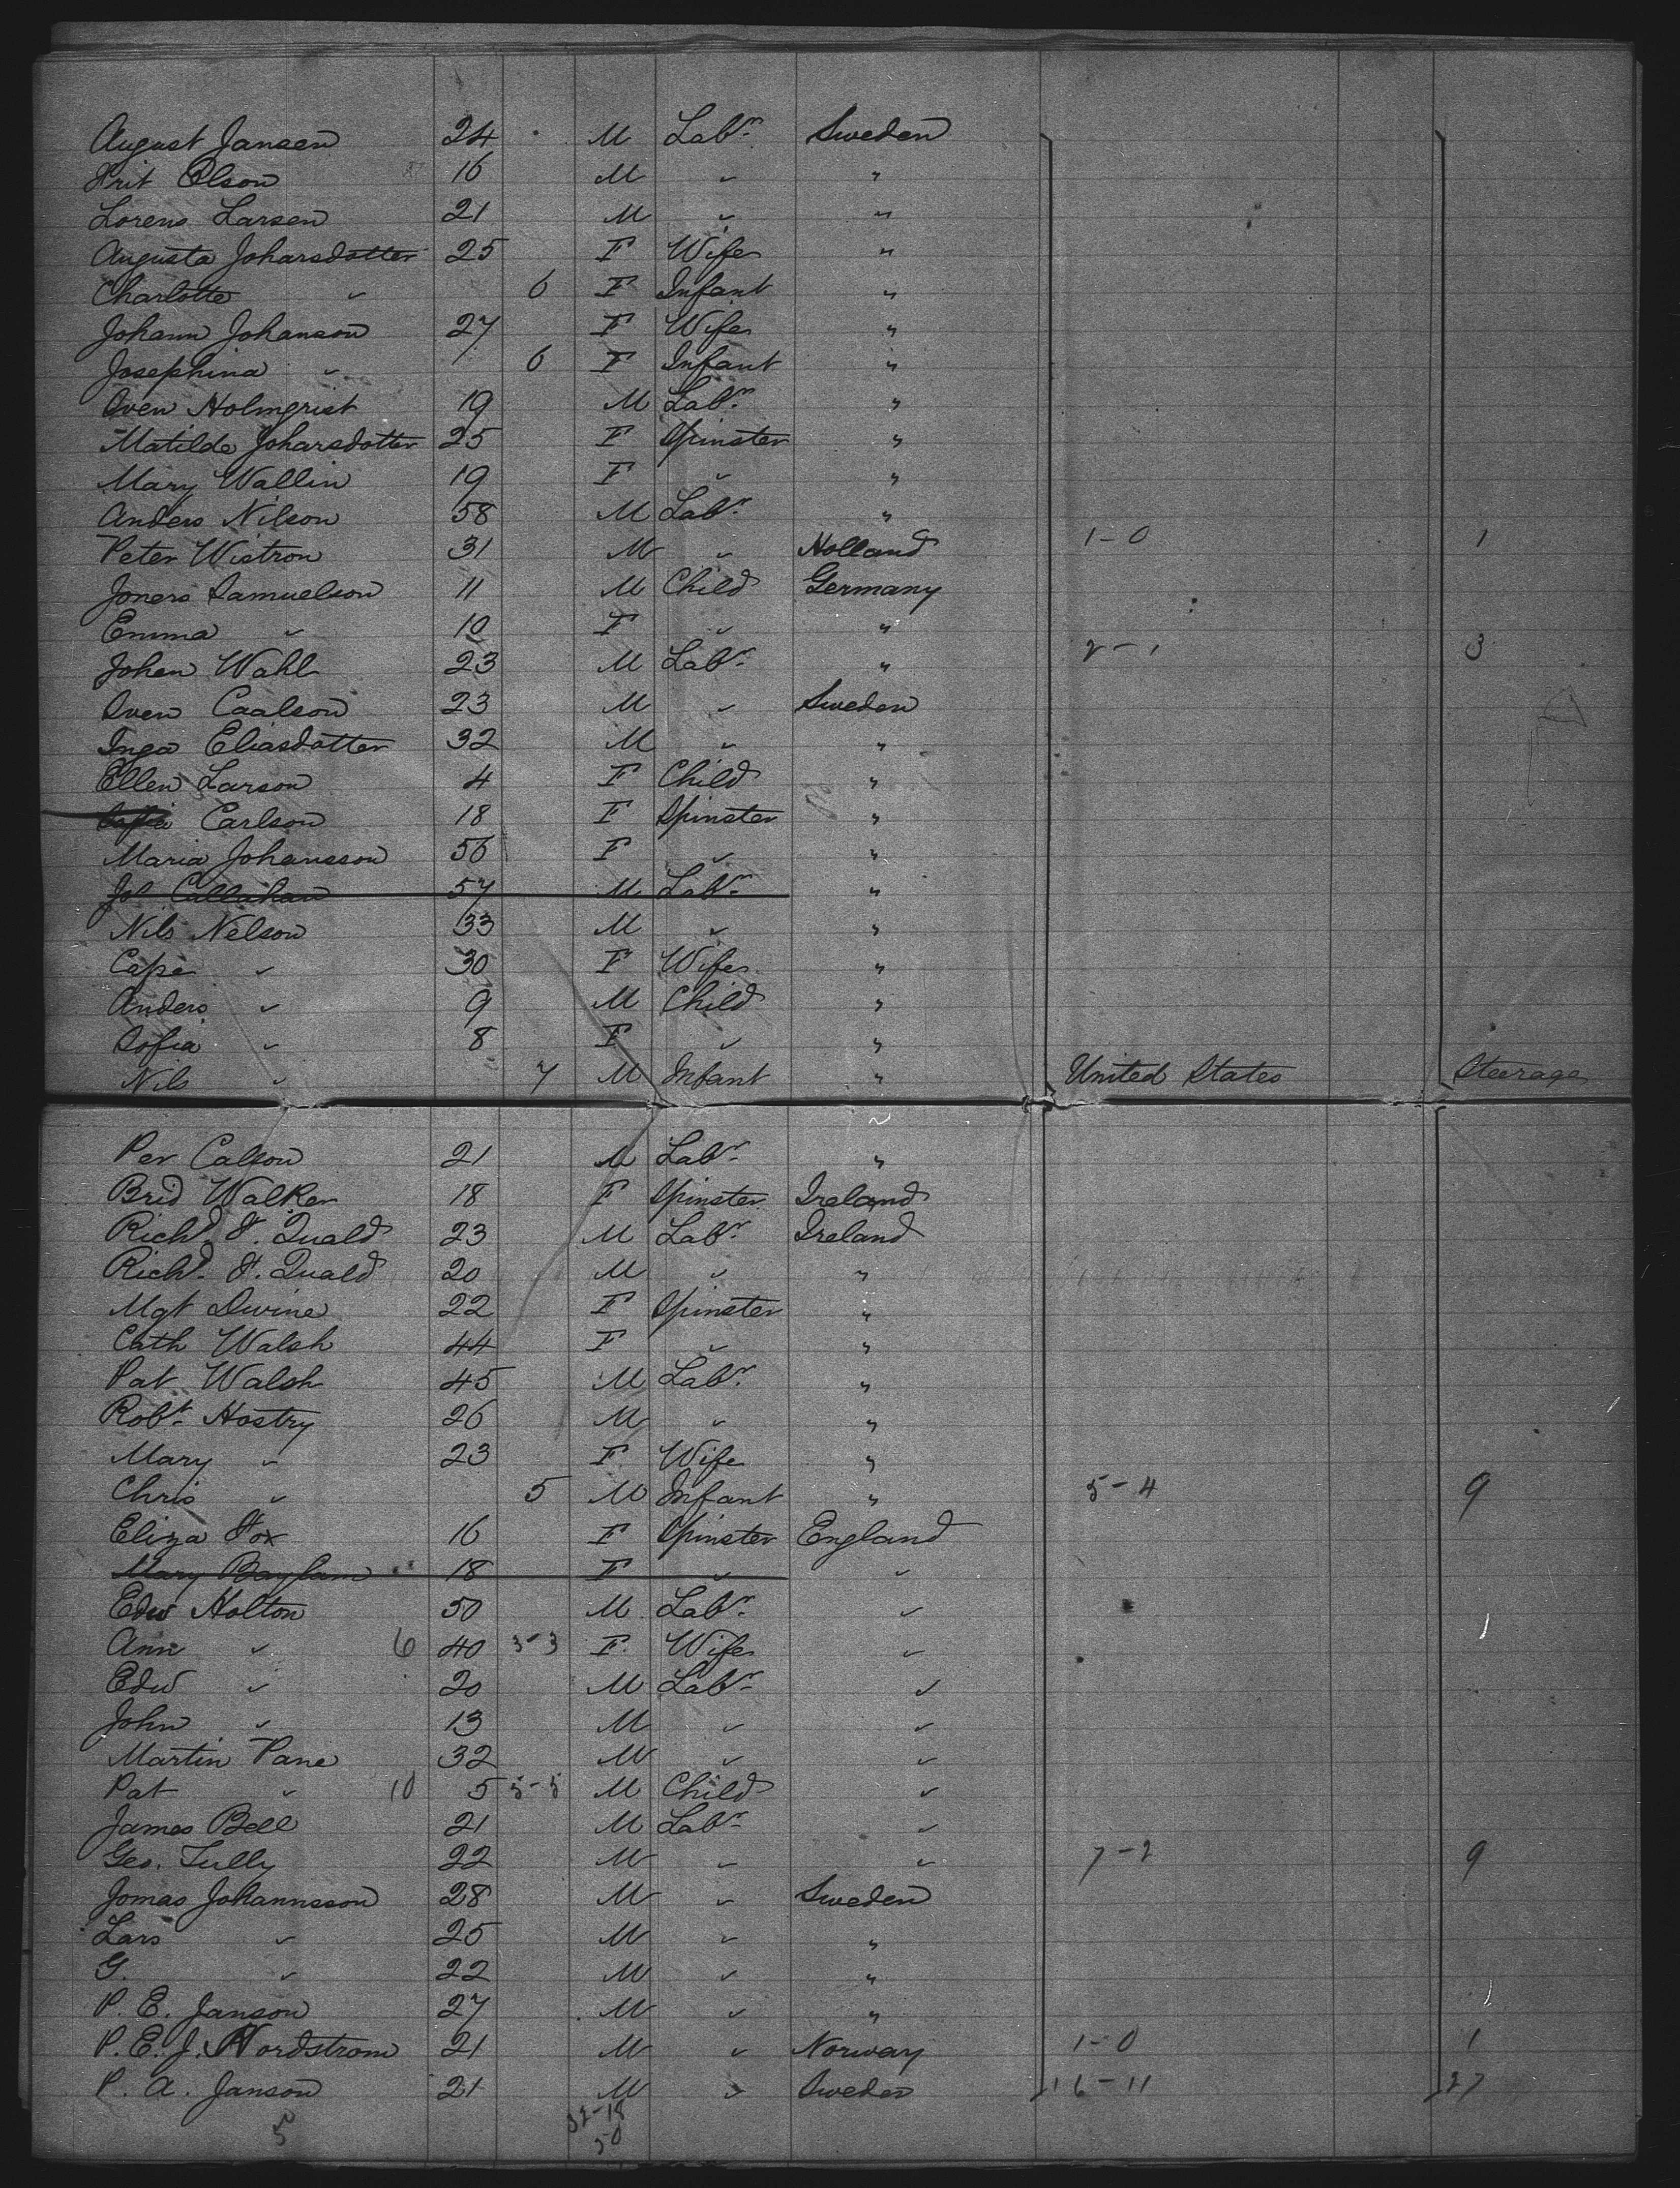 August Jansen 24 M Labr. Sweden
Krit Olson 16 M " "
Lorens Larsen 21 M " "
Augusta Joharsdotter 25 F Wife "
Charlotte " 6 F Infant "
Johann Johanson 27 F Wife "
Josephina " 6 F Infant "
Sven Holmgrist 19 M Labr. "
Matilde Joharsdotter 25 F Spinster "
Mary Wallin 19 F " "
Anders Nilson 58 M Labr. "
Peter Wistron 31 M " Holland 1-0 1
Joners Samuelson 11 M Child Germany
Emma " 10 F " "
Johan Wahl 23 M Labr. " 2-1 3
Sven Caalson 23 M " Sweden
Inga Eliasdotter 32 M " "
Ellen Larson 4 F Child "
Sofia Carlson 18 F Spinster "
Maria Johansson 56 F " "
Jol Callahan 57 M Labr. "
Nils Nelson 33 M " "
Cape " 30 F Wife "
Anders " 9 M Child "
Sofia " 8 F " "
Nils " 7 M Infant " United States Steerage
Per Calson 21 M Labr. "
Brid Walker 18 F Spinster Ireland
Richd. F. Quald 23 M Labr. Ireland
Richd. F. Quald 20 M " "
Mgt Divine 22 F Spinster "
Cath Walsh 44 F " "
Pat Walsh 45 M Labr. "
Robt. Hostry 26 M " "
Mary " 23 F Wife "
Chris " 5 M Infant " 5-4 9
Eliza Fox 16 F Spinster England
Mary Baylam 18 F " "
Edw Holton 50 M Labr. "
Ann " 6 40 3-3 F Wife "
Edw " 20 M Labr. "
John " 13 M " "
Martin Pane 32 M " "
Pat " 10 5 5-5 M Child "
James Bell 21 M Labr. "
Geo. Tully 22 M " " 7-2 9
Jomas Johannsson 28 M " Sweden
Lars " 25 M " "
G. " 22 M " "
P. E. Janson 27 M " "
P. E. J. Nordstrom 21 M " Norway 1-0 1
P. A. Janson 21 M " Sweden 16-11 27
5 32-18
50